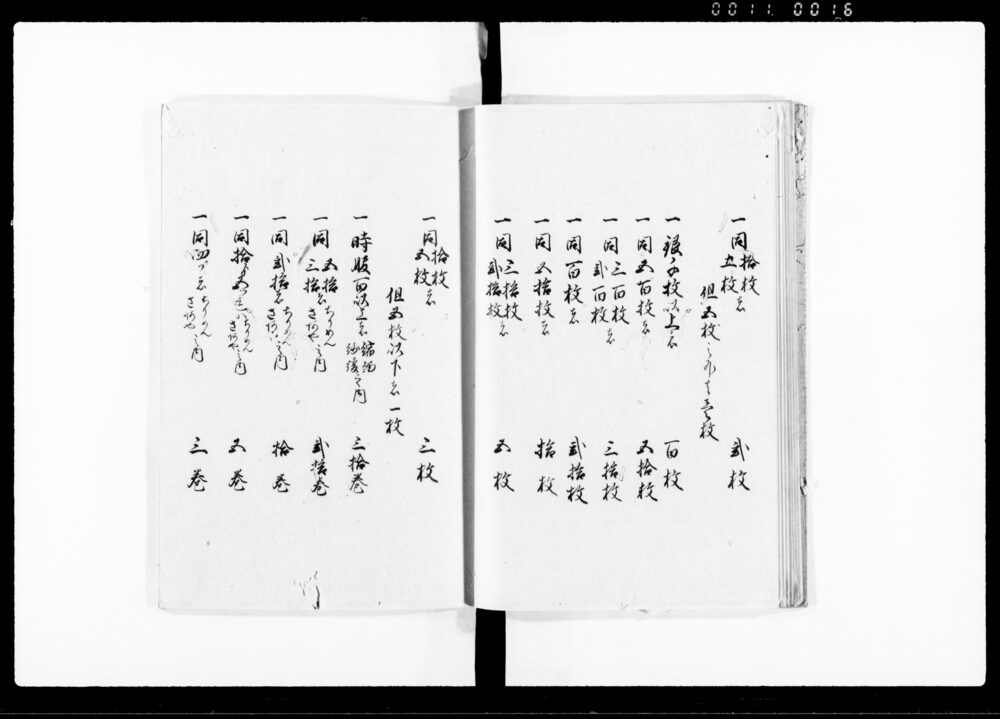 0011 0016
一同拾枚 五枚者 弐枚
但五枚之外者壱枚
一銀千枚以上者 百枚
一同五百枚者 五拾枚
一同三百枚 弐百枚者 三拾枚
一同百枚者 弐拾枚
一同五拾枚者 拾枚
一同三拾枚 弐拾枚者 五枚
一同拾枚 五枚者 三枚
但五枚以下者一枚
一時服百以上者 之内 三拾巻
一同五拾 三拾者ちりめん さあや之内 弐拾巻
一同弐拾者ちりめん さあや之内 拾巻
一同拾 五ツ者ちりめん さあや之内 五巻
一同四ツ者ちりめん さあや之内 三巻